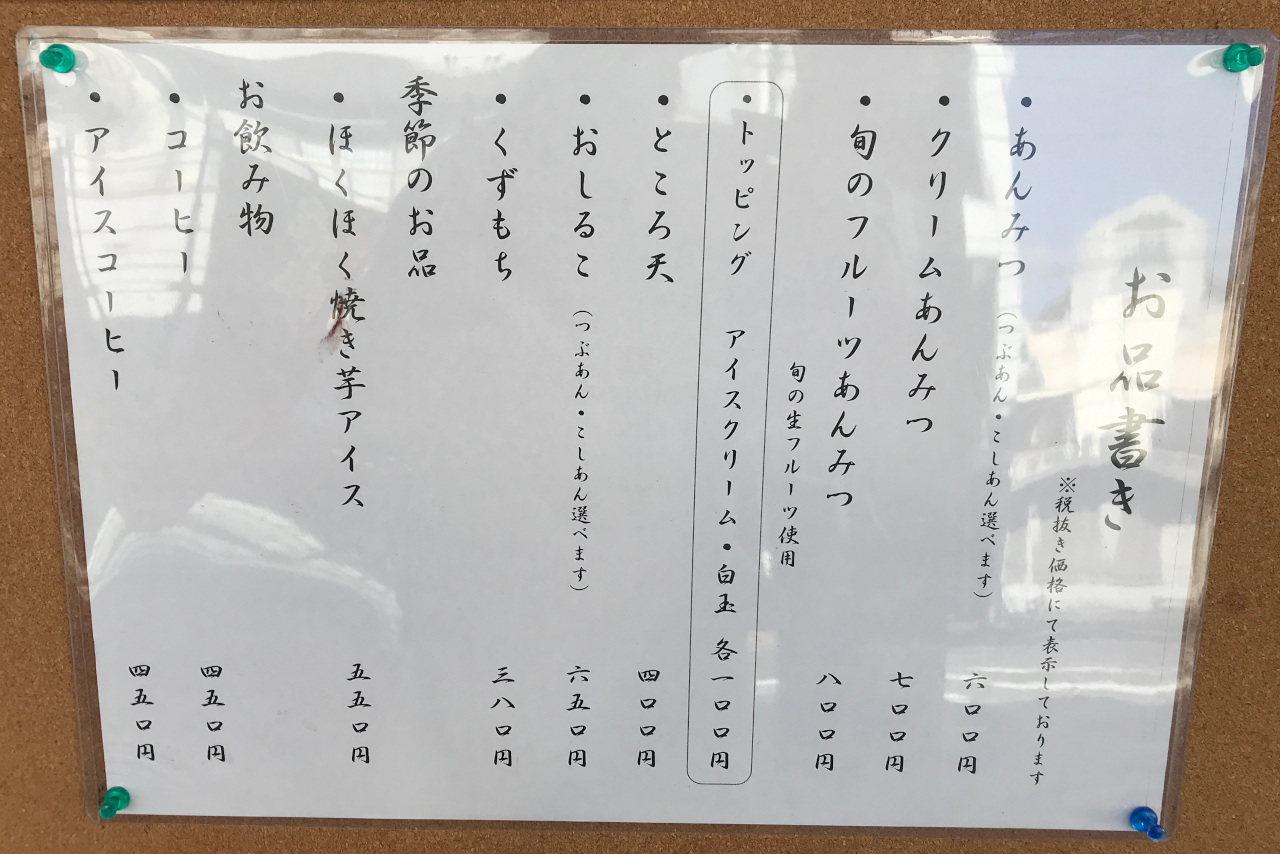 お品書き
※税抜き価格にて表示しております
・あんみつ（つぶあん・こしあん選べます） 六〇〇円
・クリームあんみつ 七〇〇円
・旬のフルーツあんみつ 八〇〇円
旬の生フルーツ使用
・トッピング アイスクリーム・白玉 各一〇〇円
・ところ天 四〇〇円
・おしるこ（つぶあん・こしあん選べます） 六五〇円
・くずもち 三八〇円
季節のお品
・ほくほく焼き芋アイス 五五〇円
お飲み物
・コーヒー 四五〇円
・アイスコーヒー 四五〇円